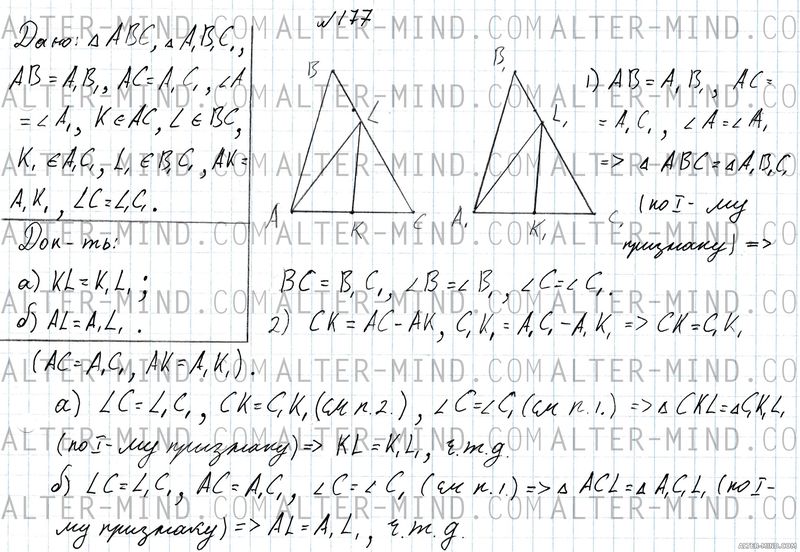 №177
Дано: △ABC, △A₁B₁C₁,
AB = A₁B₁, AC = A₁C₁, ∠A
= ∠A₁, K ∈ AC, L ∈ BC,
K₁ ∈ A₁C₁, L₁ ∈ B₁C₁, AK =
A₁K₁, LC = L₁C₁.
Док-ть:
а) KL = K₁L₁;
б) AL = A₁L₁.
B
L
A
K
C
B₁
L₁
A₁
K₁
C₁
1) AB = A₁B₁, AC =
= A₁C₁, ∠A = ∠A₁
=> △ABC = △A₁B₁C₁
(по I-му
признаку) =>
BC = B₁C₁, ∠B = ∠B₁, ∠C = ∠C₁.
2) CK = AC - AK, C₁K₁ = A₁C₁ - A₁K₁ => CK = C₁K₁
(AC = A₁C₁, AK = A₁K₁).
а) LC = L₁C₁, CK = C₁K₁ (см п.2.), ∠C = ∠C₁ (см п.1.) => △CKL = △C₁K₁L₁
(по I-му признаку) => KL = K₁L₁, ч.т.д.
б) LC = L₁C₁, AC = A₁C₁, ∠C = ∠C₁ (см п.1.) => △ACL = △A₁C₁L₁ (по I-
му признаку) => AL = A₁L₁, ч.т.д.
ALTER-MIND.COM